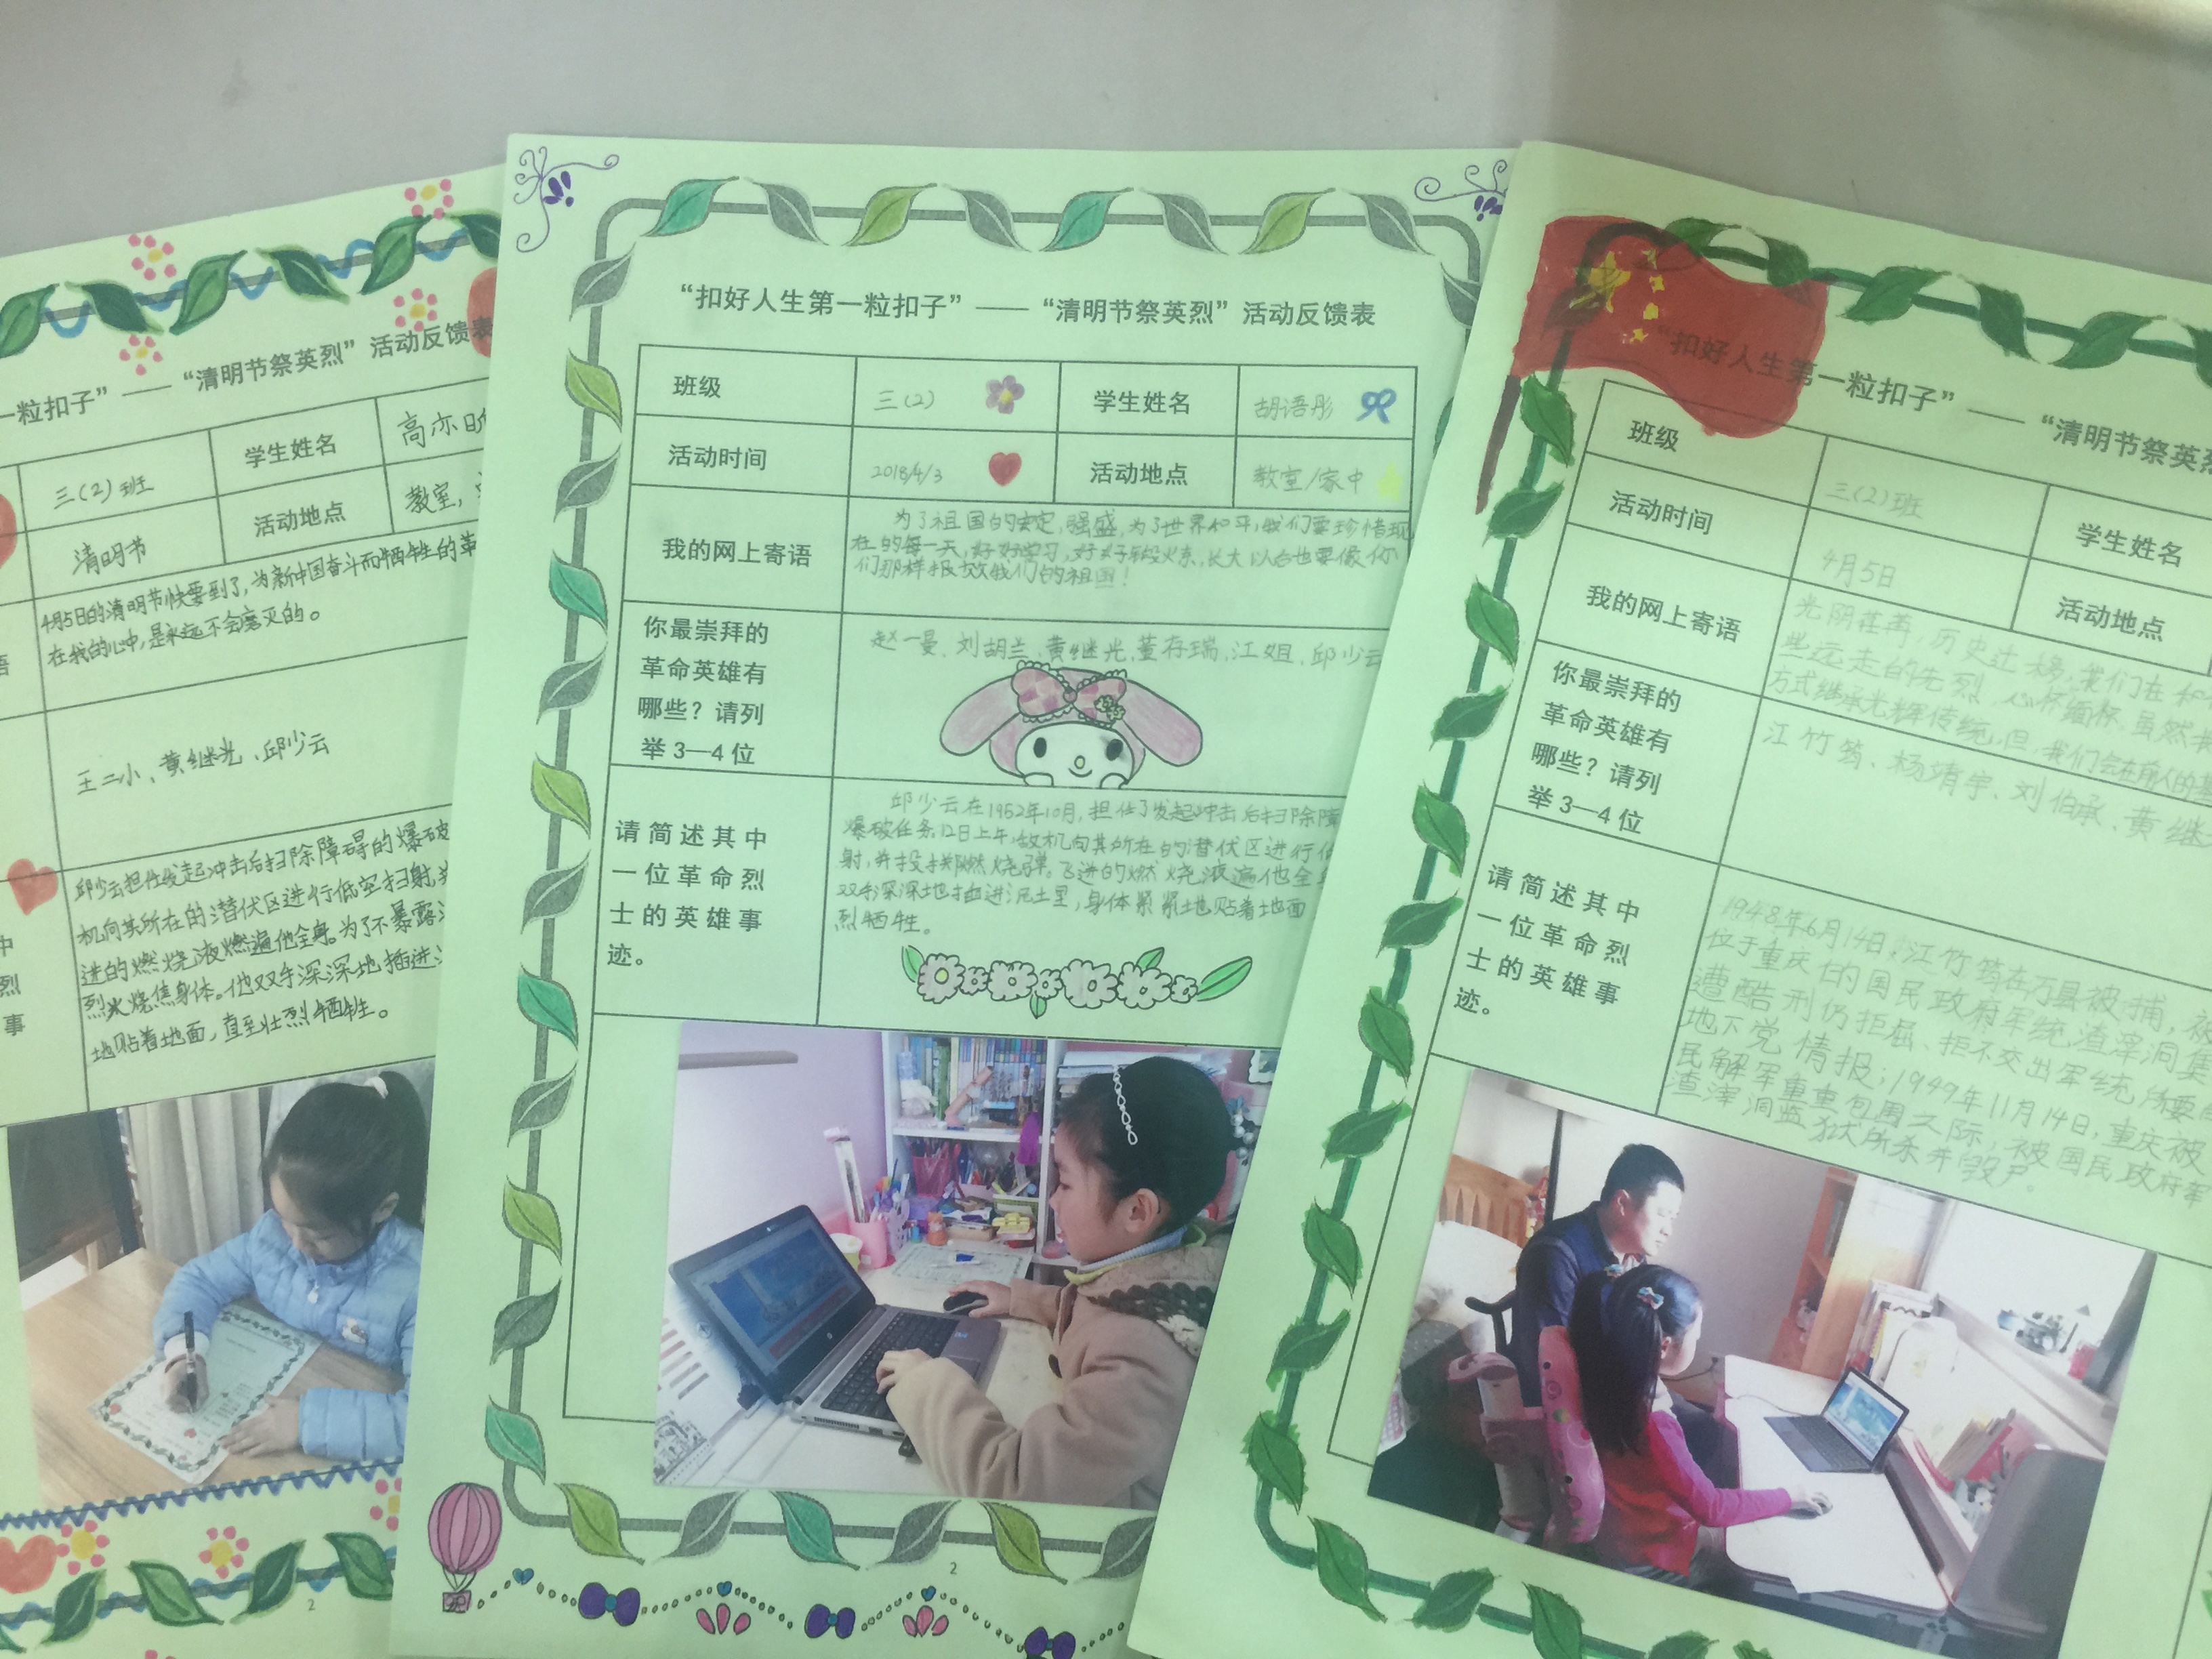 一粒扣子” —— “清明节祭英烈” 活动反馈表
三(2)班
学生姓名
高亦
清明节
活动地点
教室,
4月5日的清明节快要到了,为新中国奋斗而牺牲的革
在我的心中,是永远不会磨灭的。
王二小、黄继光、邱少云
邱少云担任发起冲击后扫除障碍的爆破
机向其所在的潜伏区进行低空扫射,并
进的燃烧液燃遍他全身。为了不暴露
烈火烧焦身体。他双手深深地插进
地贴着地面,直至壮烈牺牲。
中
烈
事
2
“扣好人生第一粒扣子” —— “清明节祭英烈” 活动反馈表
班级
三(2)
学生姓名
胡语彤
活动时间
2018/4/3
活动地点
教室/家中
我的网上寄语
为了祖国的安定,强盛,为了世界和平,我们要珍惜现
在的每一天,好好学习,好好锻炼,长大以后也要像你
们那样报效我们的祖国!
你最崇拜的
革命英雄有
哪些?请列
举3—4位
赵一曼、刘胡兰、黄继光、董存瑞、江姐、邱少云
请简述其中
一位革命烈
士的英雄事
迹。
邱少云在1952年10月,担任了发起冲击后扫除障
爆破任务,12日上午,敌机向其所在的潜伏区进行低
射,并投掷燃烧弹。飞进的燃烧液遍他全身
双手深深地插进泥土里,身体紧紧地贴着地面
烈牺牲。
2
“扣好人生第一粒扣子” —— “清明节祭英烈
班级
三(2)班
学生姓名
活动时间
4月5日
活动地点
我的网上寄语
光阴荏苒,历史迁移,我们在和
些远走的先烈,心怀缅怀,虽然我
方式继承光辉传统,但,我们会在前人的
你最崇拜的
革命英雄有
哪些?请列
举3—4位
江竹筠、杨靖宇、刘伯承、黄继
请简述其中
一位革命烈
士的英雄事
迹。
1948年6月14日,江竹筠在万县被捕,被
位于重庆的国民政府军统渣滓洞集
遭酷刑仍拒屈、拒不交出军统所要
地下党情报;1949年11月14日,重庆被
民解军重重包围之际,被国民政府军
渣滓洞监狱所杀并毁尸。